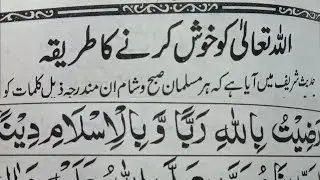 اللہ تعالیٰ کو خوش کرنے کا طریقہ
حدیث شریف میں آیا ہے کہ ہر مسلمان صبح و شام ان مندرجہ ذیل کلمات کو
رَضِيْتُ بِاللهِ رَبًّا وَّ بِالْاِسْلَامِ دِيْنًا